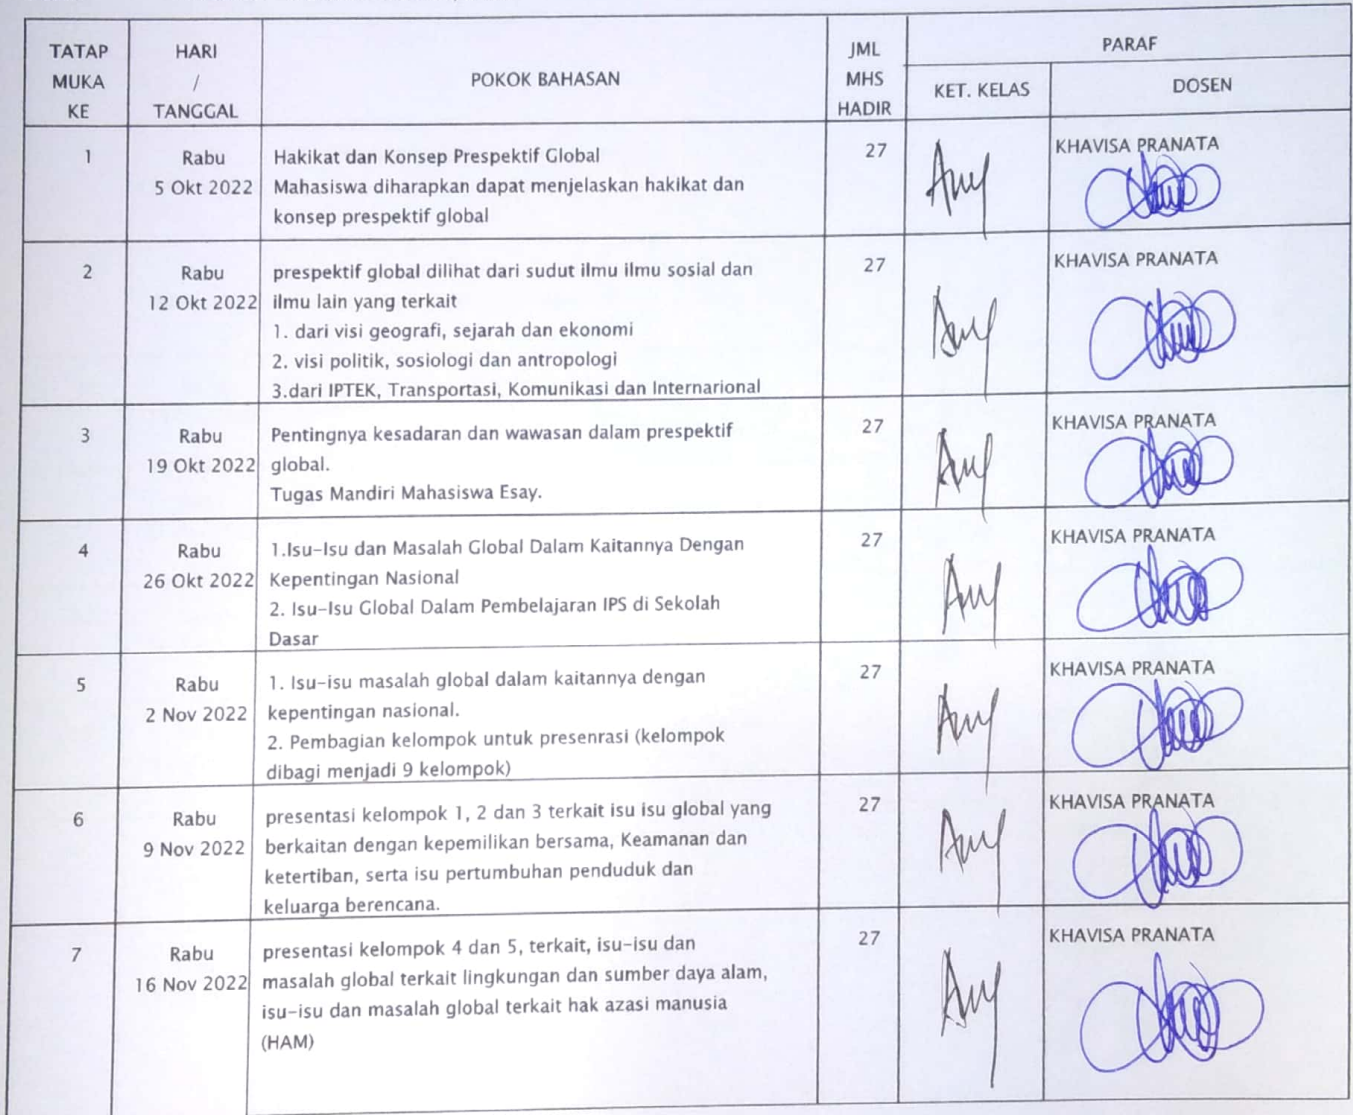 TATAP
MUKA
KE
HARI
/
TANGGAL
POKOK BAHASAN
JML
MHS
HADIR
PARAF
KET. KELAS
DOSEN
1
Rabu
5 Okt 2022
Hakikat dan Konsep Prespektif Global
Mahasiswa diharapkan dapat menjelaskan hakikat dan
konsep prespektif global
27
KHAVISA PRANATA
2
Rabu
12 Okt 2022
prespektif global dilihat dari sudut ilmu ilmu sosial dan
ilmu lain yang terkait
1. dari visi geografi, sejarah dan ekonomi
2. visi politik, sosiologi dan antropologi
3.dari IPTEK, Transportasi, Komunikasi dan Internarional
27
KHAVISA PRANATA
3
Rabu
19 Okt 2022
Pentingnya kesadaran dan wawasan dalam prespektif
global.
Tugas Mandiri Mahasiswa Esay.
27
KHAVISA PRANATA
4
Rabu
26 Okt 2022
1.Isu-Isu dan Masalah Global Dalam Kaitannya Dengan
Kepentingan Nasional
2. Isu-Isu Global Dalam Pembelajaran IPS di Sekolah
Dasar
27
KHAVISA PRANATA
5
Rabu
2 Nov 2022
1. Isu-isu masalah global dalam kaitannya dengan
kepentingan nasional.
2. Pembagian kelompok untuk presenrasi (kelompok
dibagi menjadi 9 kelompok)
27
KHAVISA PRANATA
6
Rabu
9 Nov 2022
presentasi kelompok 1, 2 dan 3 terkait isu isu global yang
berkaitan dengan kepemilikan bersama, Keamanan dan
ketertiban, serta isu pertumbuhan penduduk dan
keluarga berencana.
27
KHAVISA PRANATA
7
Rabu
16 Nov 2022
presentasi kelompok 4 dan 5, terkait, isu-isu dan
masalah global terkait lingkungan dan sumber daya alam,
isu-isu dan masalah global terkait hak azasi manusia
(HAM)
27
KHAVISA PRANATA